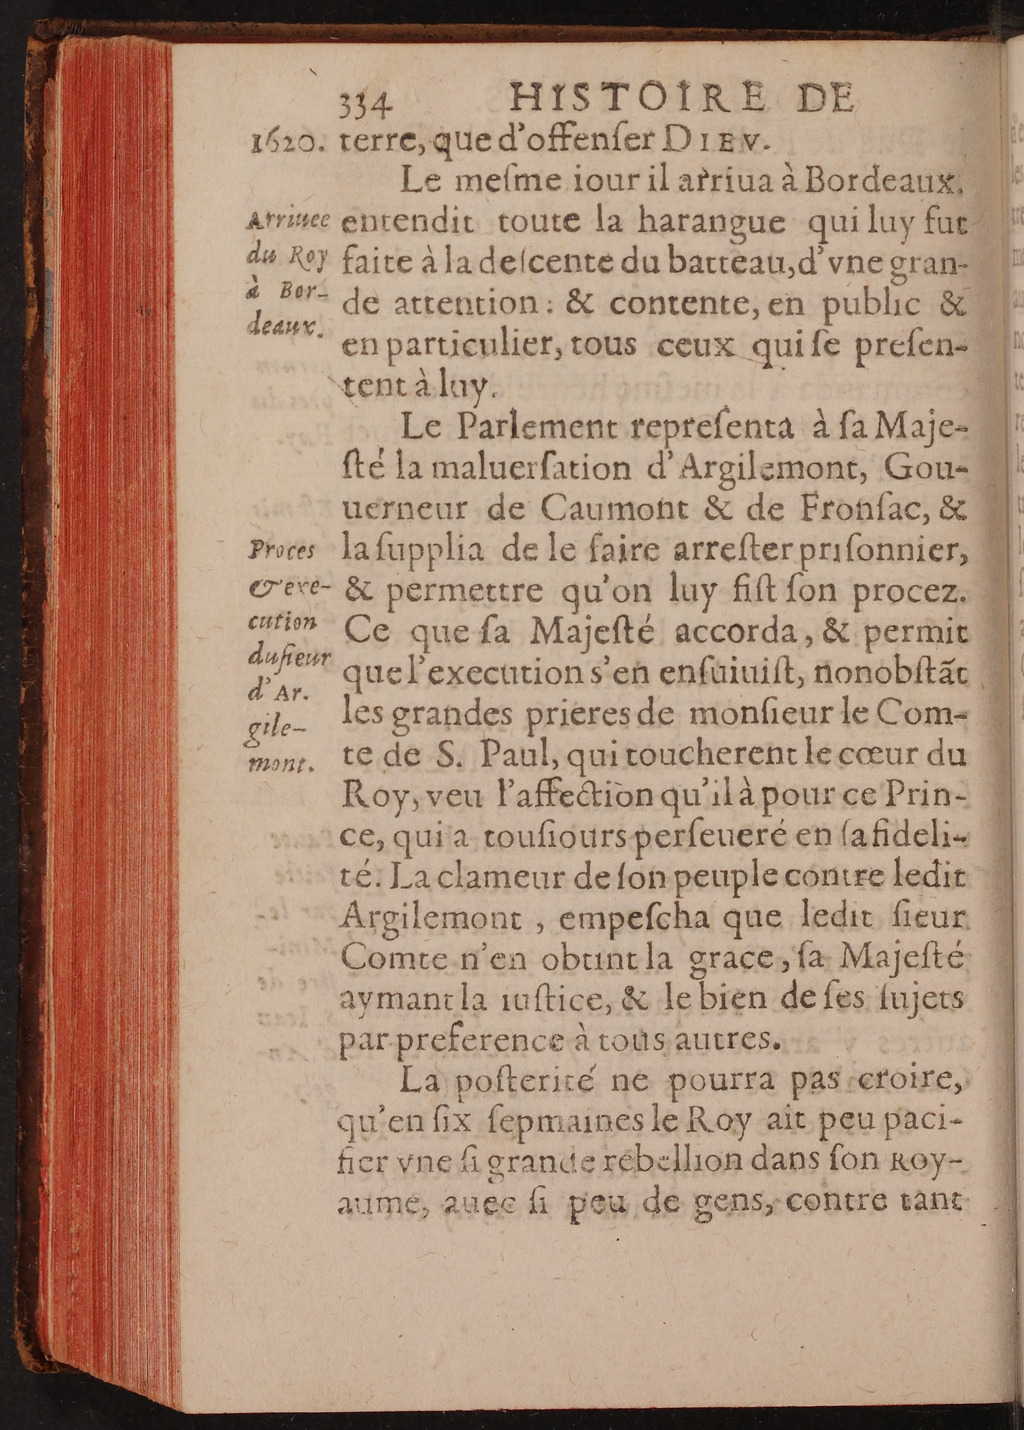 334 HISTOIRE DE
1620. terre, que d'offenſer DIEV.
Le meſme iour il arriua à Bordeaux,
Arriuee
du Roy
à Bor-
deaux.
entendit toute la harangue qui luy fut
faite à la deſcente du batteau, d'vne gran-
de attention: & contente, en public &
en particulier, tous ceux qui ſe preſen-
tent à luy.
Le Parlement repreſenta à ſa Maje-
ſté la maluerſation d'Argilemont, Gou-
uerneur de Caumont & de Fronſac, &
Proces
& exe-
cution
du ſieur
d'Ar-
gile-
mont.
la ſupplia de le faire arreſter priſonnier,
& permettre qu'on luy fiſt ſon procez.
Ce que ſa Majeſté accorda, & permit
que l'execution s'en enſuiuiſt, nonobſtãt
les grandes prieres de monſieur le Com-
te de S. Paul, qui toucherent le cœur du
Roy, veu l'affection qu'il à pour ce Prin-
ce, qui a touſiours perſeueré en ſa fideli-
té. La clameur de ſon peuple contre ledit
Argilemont, empeſcha que ledit ſieur
Comte n'en obtint la grace, ſa Majeſté
aymant la iuſtice, & le bien de ſes ſujets
par preference à tous autres.
La poſterité ne pourra pas croire,
qu'en ſix ſepmaines le Roy ait peu paci-
fier vne ſi grande rebellion dans ſon Roy-
aume, auec ſi peu de gens, contre tant